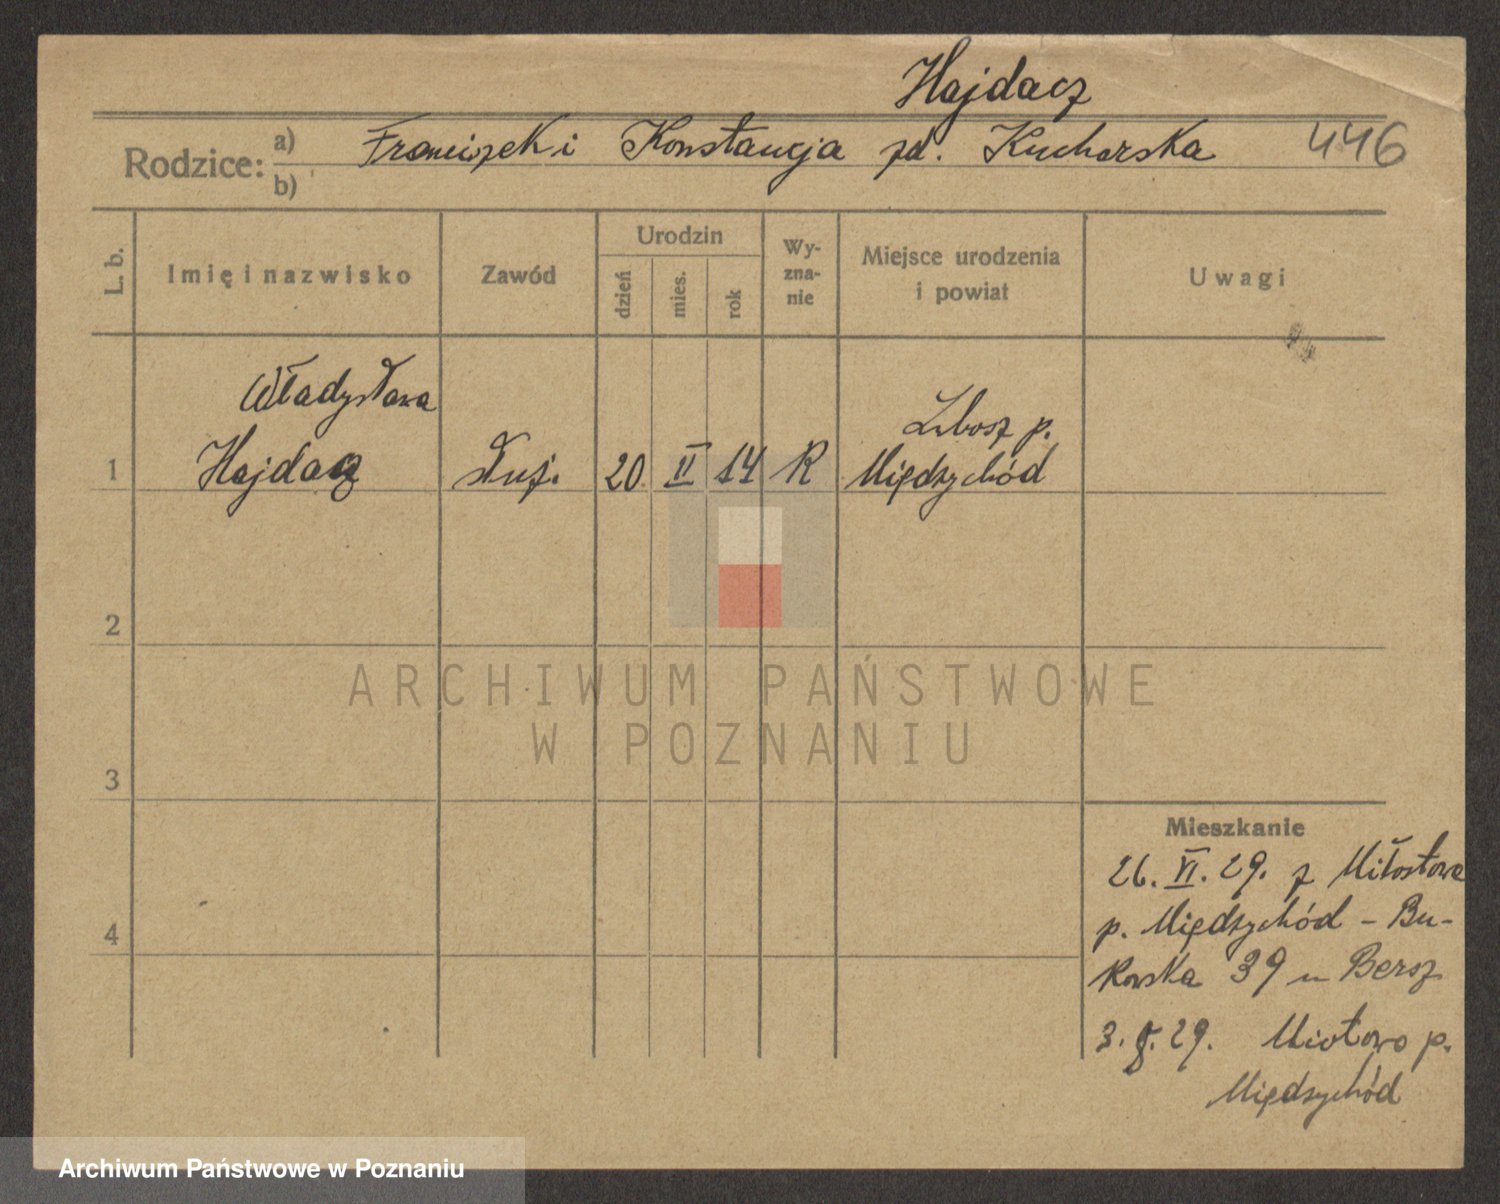 Hajdacz
Rodzice: a) Franciszek i Konstancja zd. Kucharska 446
b)
L. b. Imię i nazwisko Zawód Urodzin dzień mies. rok Wy-zna-nie Miejsce urodzenia i powiat Uwagi
Władysława
Hajdacz
1 służ. 20 II 14 R Lubosz p.
Międzychód
2
3
4
ARCHIWUM PAŃSTWOWE
W POZNANIU
Mieszkanie
26. VI. 29. z Miłostowa
p. Międzychód - Bu-
kowska 39 u Bersz
3. 8. 29. p.
Międzychód
Archiwum Państwowe w Poznaniu